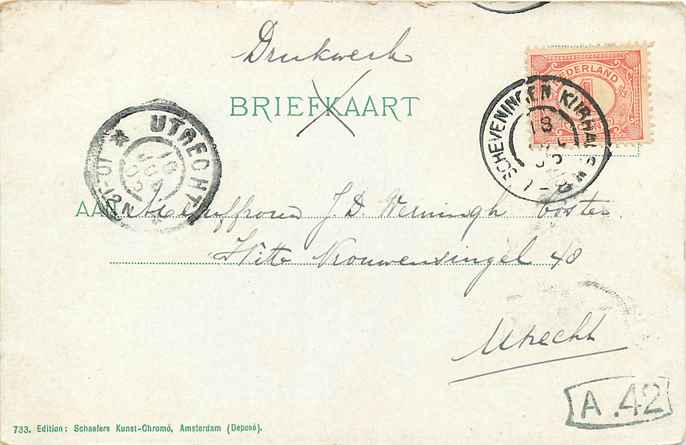 Drukwerk
BRIEFKAART
NEDERLAND
SCHEVENINGEN KURHAUS
18
UTRECHT
10-12N
18
JUL
02
AAN Mejuffrouw J.D. Werningh Coster
Witte Vrouwensingel 40
Utrecht
A.42
733. Edition: Schaefers Kunst-Chromó, Amsterdam (Deposé).